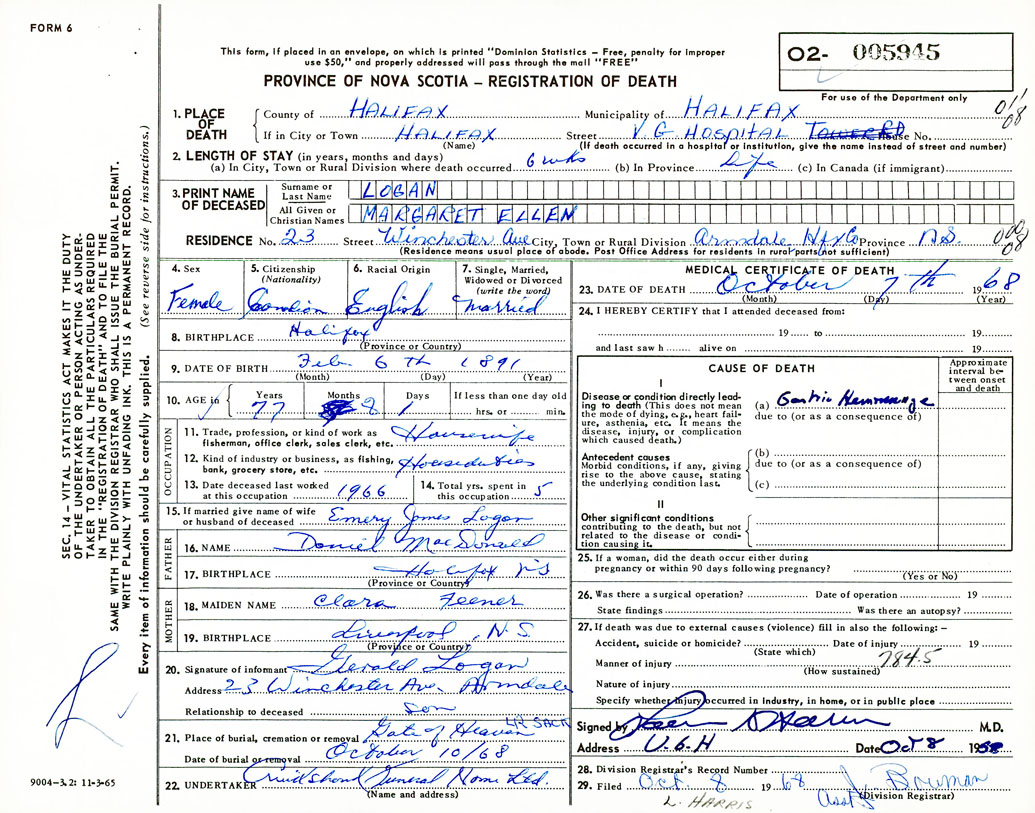 FORM 6
This form, if placed in an envelope, on which is printed "Dominion Statistics – Free, penalty for improper
use $50," and properly addressed will pass through the mail "FREE"
PROVINCE OF NOVA SCOTIA – REGISTRATION OF DEATH
O2- 005945
For use of the Department only
1. PLACE OF DEATH
County of HALIFAX Municipality of HALIFAX
If in City or Town HALIFAX Street V. G. HOSPITAL House No.
(Name) (If death occurred in a hospital or institution, give the name instead of street and number)
2. LENGTH OF STAY (in years, months and days)
(a) In City, Town or Rural Division where death occurred 6 wks (b) In Province Life (c) In Canada (if immigrant)
3. PRINT NAME OF DECEASED
Surname or Last Name LOGAN
All Given or Christian Names MARGARET ELLEN
RESIDENCE No. 23 Street Winchester Ave City, Town or Rural Division Armdale Hfx Co Province N.S.
(Residence means usual place of abode. Post Office Address for residents in rural parts not sufficient)
4. Sex Female
5. Citizenship (Nationality) Canadian
6. Racial Origin English
7. Single, Married, Widowed or Divorced (write the word) Married
8. BIRTHPLACE Halifax
(Province or Country)
9. DATE OF BIRTH Feb 6 th 1891
(Month) (Day) (Year)
10. AGE in Years 77 Months 8 Days 1 If less than one day old hrs. or min.
OCCUPATION
11. Trade, profession, or kind of work as fisherman, office clerk, sales clerk, etc. Housewife
12. Kind of industry or business, as fishing, bank, grocery store, etc. Houseduties
13. Date deceased last worked at this occupation 1966
14. Total yrs. spent in this occupation 5
15. If married give name of wife or husband of deceased Emery James Logan
FATHER
16. NAME Daniel MacDonald
17. BIRTHPLACE Halifax NS
(Province or Country)
MOTHER
18. MAIDEN NAME Clara Feener
19. BIRTHPLACE Liverpool, N.S.
(Province or Country)
20. Signature of informant Gerald Logan
Address 23 Winchester Ave. Armdale
Relationship to deceased Son
21. Place of burial, cremation or removal Gate of Heaven SACK
Date of burial or removal October 10/68
22. UNDERTAKER Cruikshank Funeral Home Ltd.
(Name and address)
MEDICAL CERTIFICATE OF DEATH
23. DATE OF DEATH October 7 th 1968
(Month) (Day) (Year)
24. I HEREBY CERTIFY that I attended deceased from:
19 to 19
and last saw h alive on 19
CAUSE OF DEATH
Approximate interval between onset and death
I
Disease or condition directly leading to death (This does not mean the mode of dying, e.g., heart failure, asthenia, etc. It means the disease, injury, or complication which caused death.)
(a) Gastric Hemorrage
due to (or as a consequence of)
Antecedent causes
Morbid conditions, if any, giving rise to the above cause, stating the underlying condition last.
(b)
due to (or as a consequence of)
(c)
II
Other significant conditions
contributing to the death, but not related to the disease or condition causing it.
25. If a woman, did the death occur either during
pregnancy or within 90 days following pregnancy?
(Yes or No)
26. Was there a surgical operation? Date of operation 19
State findings Was there an autopsy?
27. If death was due to external causes (violence) fill in also the following: –
Accident, suicide or homicide? Date of injury 19
(State which) 784.5
Manner of injury
(How sustained)
Nature of injury
Specify whether injury occurred in industry, in home, or in public place
Signed by M.D.
Address V.G.H Date Oct 8 1968
28. Division Registrar's Record Number
29. Filed Oct. 8 1968 J. Bowman
Asst (Division Registrar)
L. HARRIS
SEC. 14 – VITAL STATISTICS ACT MAKES IT THE DUTY
OF THE UNDERTAKER OR PERSON ACTING AS UNDER-
TAKER TO OBTAIN ALL THE PARTICULARS REQUIRED
IN THE "REGISTRATION OF DEATH" AND TO FILE THE
SAME WITH THE DIVISION REGISTRAR WHO SHALL ISSUE THE BURIAL PERMIT.
WRITE PLAINLY WITH UNFADING INK. THIS IS A PERMANENT RECORD.
Every item of information should be carefully supplied. (See reverse side for instructions.)
9004-3.2: 11-3-65